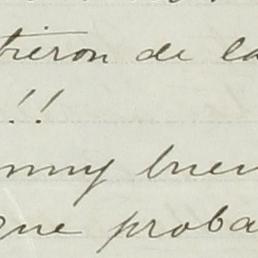 tieron de la
!!
muy buen
que proba